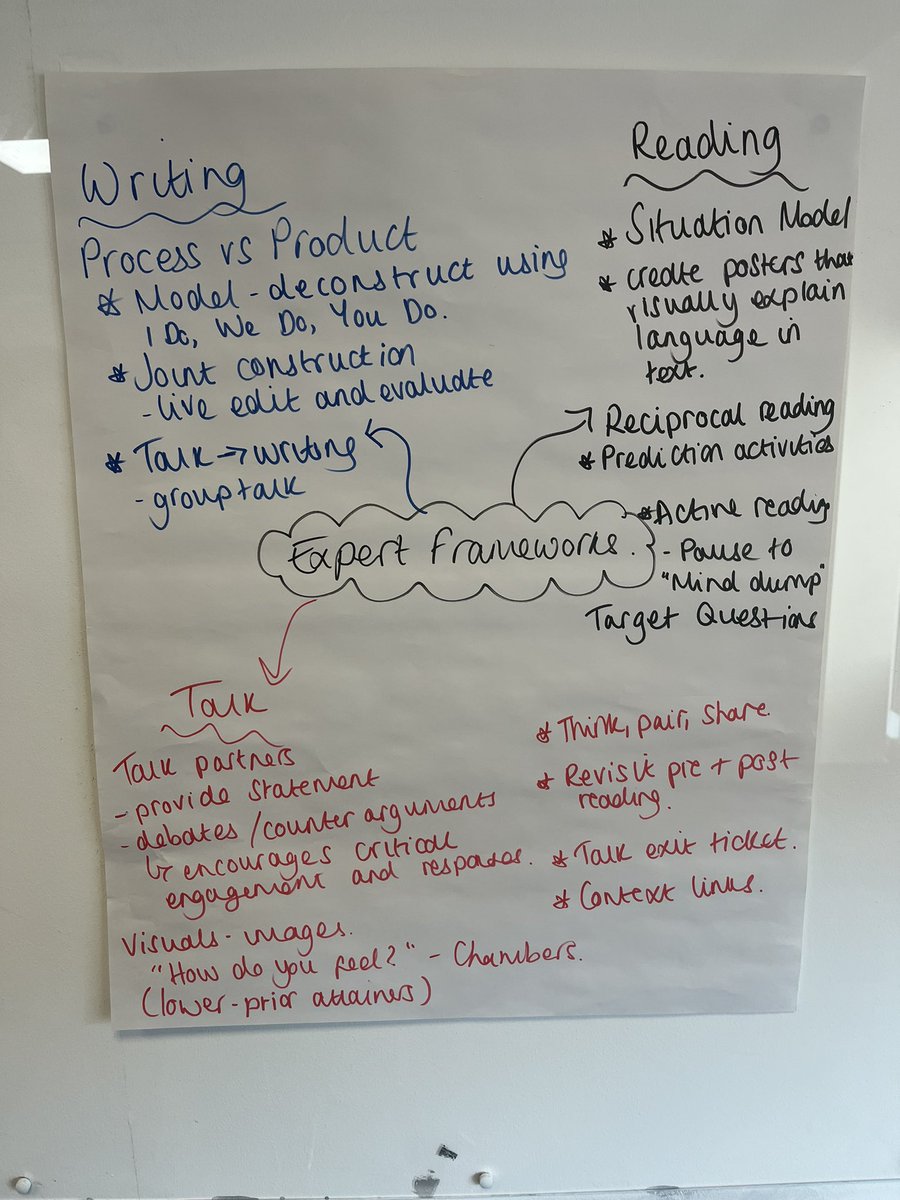 Writing
Process vs Product
* Model - deconstruct using
I Do, We Do, You Do.
* Joint construction
- live edit and evaluate
* Talk → writing
- group talk
Reading
* Situation Model
* create posters that
visually explain
language in
text.
Reciprocal reading
* Prediction activities
* Active reading
- Pause to
"Mind dump"
Target Questions
Expert frameworks.
Talk
Talk partners
- provide statement
- debates / counter arguments
↳ encourages critical
engagement and responses.
Visuals - images.
"How do you feel?" - Chambers.
(lower-prior attainers)
* Think, pair, share.
* Revisit pre + post
reading.
* Talk exit ticket.
* Context links.